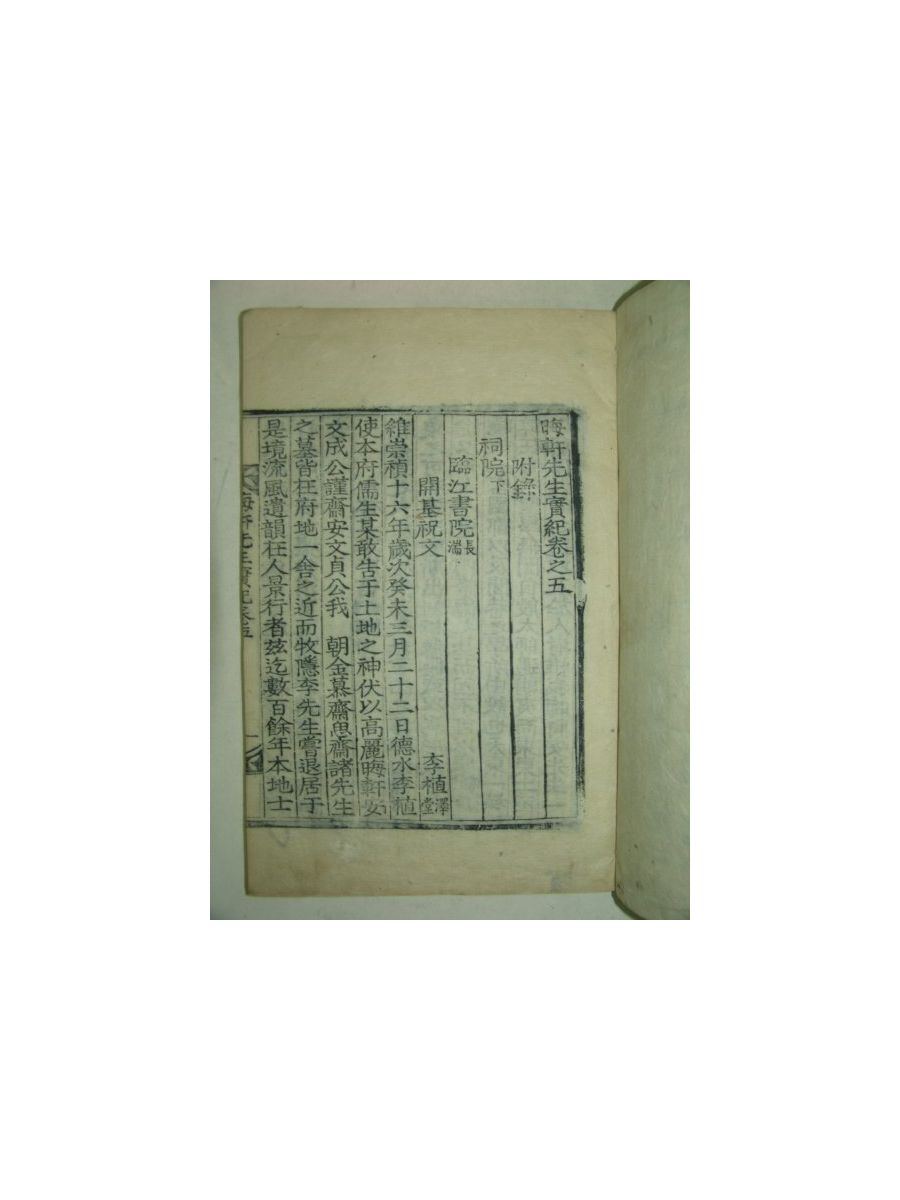 晦軒先生實紀卷之五
附錄
祠院下
臨江書院長湍
開基祝文 李植澤堂
維崇禎十六年歲次癸未三月二十二日德水李植
使本府儒生某敢告于土地之神伏以高麗晦軒安
文成公謹齋安文貞公我 朝金慕齋思齋諸先生
之墓皆在府地一舍之近而牧隱李先生嘗退居于
是境流風遺韻在人景行者玆迄數百餘年本地士
晦軒先生實紀卷五 一